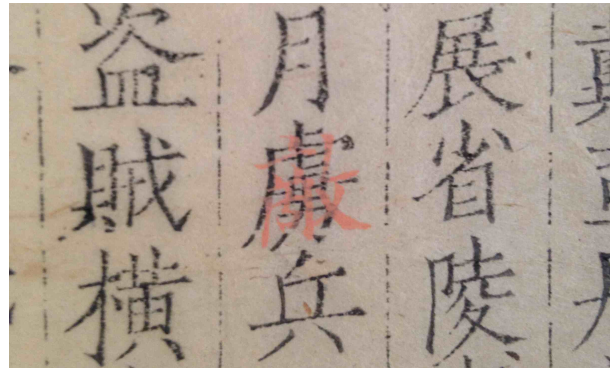 展省陵
月虜兵
盗賊横